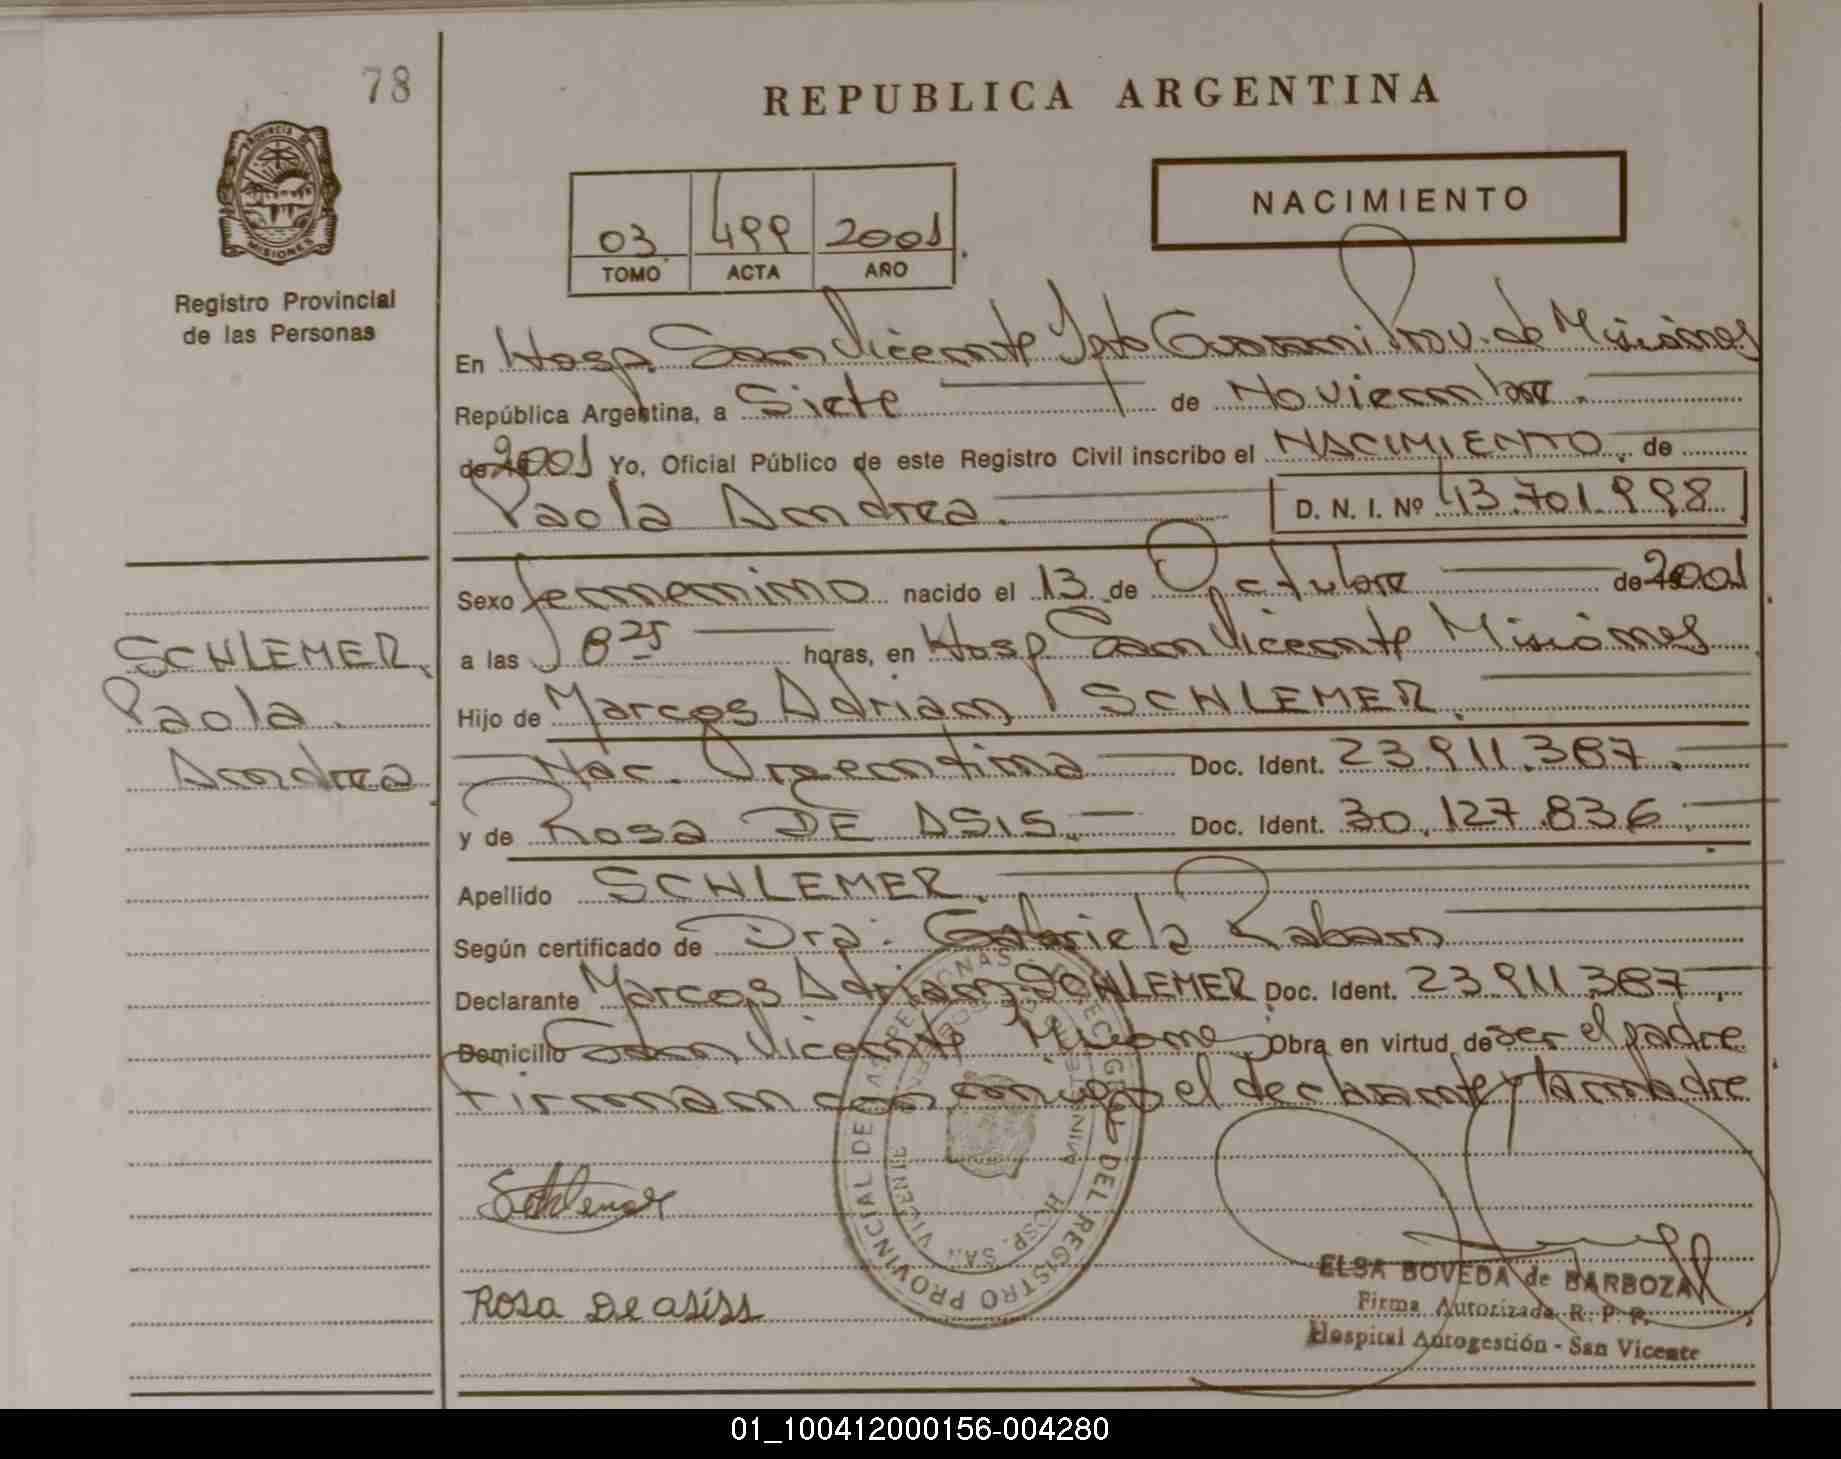 78
REPUBLICA ARGENTINA
PROVINCIA DE
MISIONES
Registro Provincial
de las Personas
03 499 2001
TOMO ACTA AÑO
NACIMIENTO
En Hosp. San Vicente Dpto Guarani Prov. de Misiones
República Argentina, a Siete de Noviembre.
de 2001 Yo, Oficial Público de este Registro Civil inscribo el NACIMIENTO, de
Paola Andrea. D. N. I. Nº 43.701.998
Sexo femenino nacido el 13 de Octubre de 2001
a las 8 25 horas, en Hosp San Vicente Misiones
Hijo de Marcos Adrian SCHLEMER.
Nac. Argentina Doc. Ident. 23.911.387.
y de Rosa DE ASIS. Doc. Ident. 30.127.836
Apellido SCHLEMER.
Según certificado de Dra. Gabriela Raban
Declarante Marcos Adrian SCHLEMER Doc. Ident. 23.911.387
Domicilio San Vicente Misiones Obra en virtud de ser el padre
Firman conmigo el declarante y la madre
SCHLEMER,
Paola
Andrea.
Schlemer
Rosa De asiss
REGISTRO PROVINCIAL DE LAS PERSONAS
HOSP. SAN VICENTE
ELSA BOVEDA de BARBOZA
Firma Autorizada R. P. P.
Hospital Autogestión - San Vicente
01_100412000156-004280